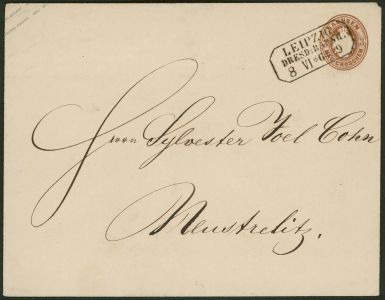 LEIPZIG
DRESD: BAHNH.
8 VI
SACHSEN
GROSCHEN
Herrn Sylvester Joel Cohn
Neustrelitz.